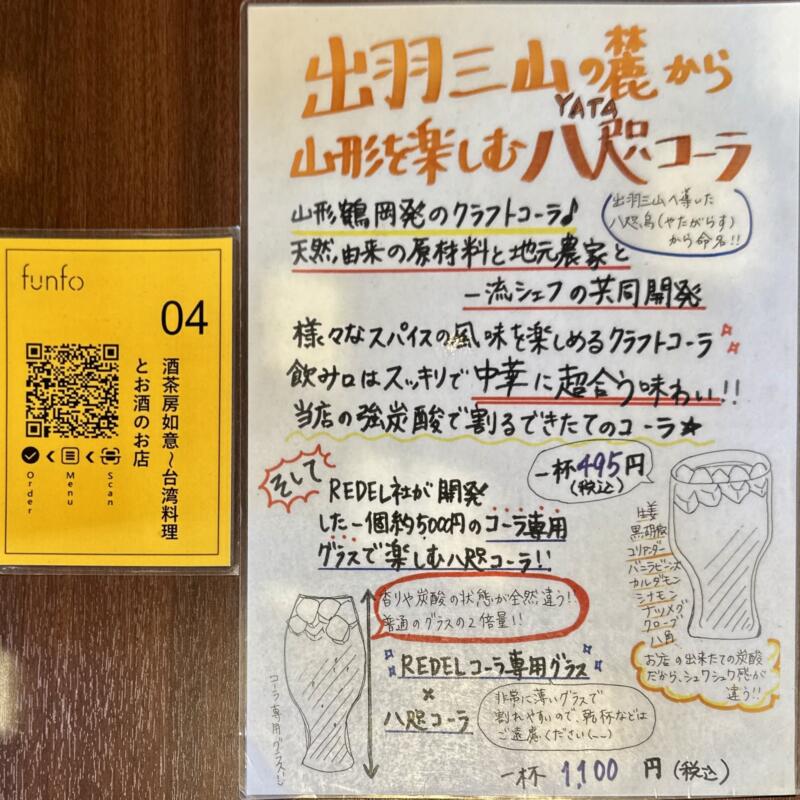 出羽三山の麓から
YATA
山形を楽しむ八咫コーラ
山形鶴岡発のクラフトコーラ♪
出羽三山へ導いた
八咫烏(やたがらす)
から命名!!
天然由来の原材料と地元農家と
一流シェフの共同開発
様々なスパイスの風味を楽しめるクラフトコーラ
飲み口はスッキリで中華に超合う味わい!!
当店の強炭酸で割るできたてのコーラ★
一杯495円
(税込)
そして
REDEL社が開発
した一個約5,000円のコーラ専用
グラスで楽しむ八咫コーラ!!
生姜
黒胡椒
コリアンダー
バニラビーンズ
カルダモン
シナモン
ナツメグ
クローブ
八角
お店の出来たての炭酸
だから、シュワシュワ感が
違う!!
香りや炭酸の状態が全然違う!!
普通のグラスの2倍量!!
REDELコーラ専用グラス
×
八咫コーラ
コーラ専用グラス!!
非常に薄いグラスで
割れやすいので、乾杯などは
ご遠慮ください(__)
一杯 1,100 円(税込)
funfo
04
酒茶房如意~台湾料理
とお酒のお店
Scan
Menu
Order